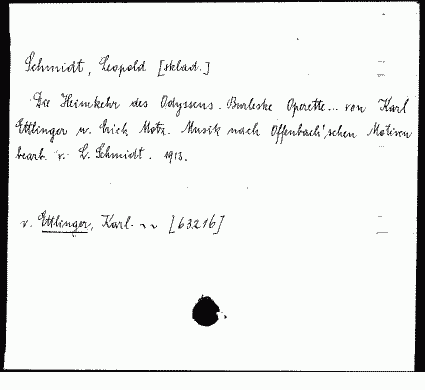 Schmidt, Leopold [sklad.]
Die Heimkehr des Odysseus. Burleske Operette... von Karl
Ettlinger u. Erich Motz. Musik nach Offenbach'schen Motiven
bearb. v. L. Schmidt. 1913.
v. Ettlinger, Karl. [63216]